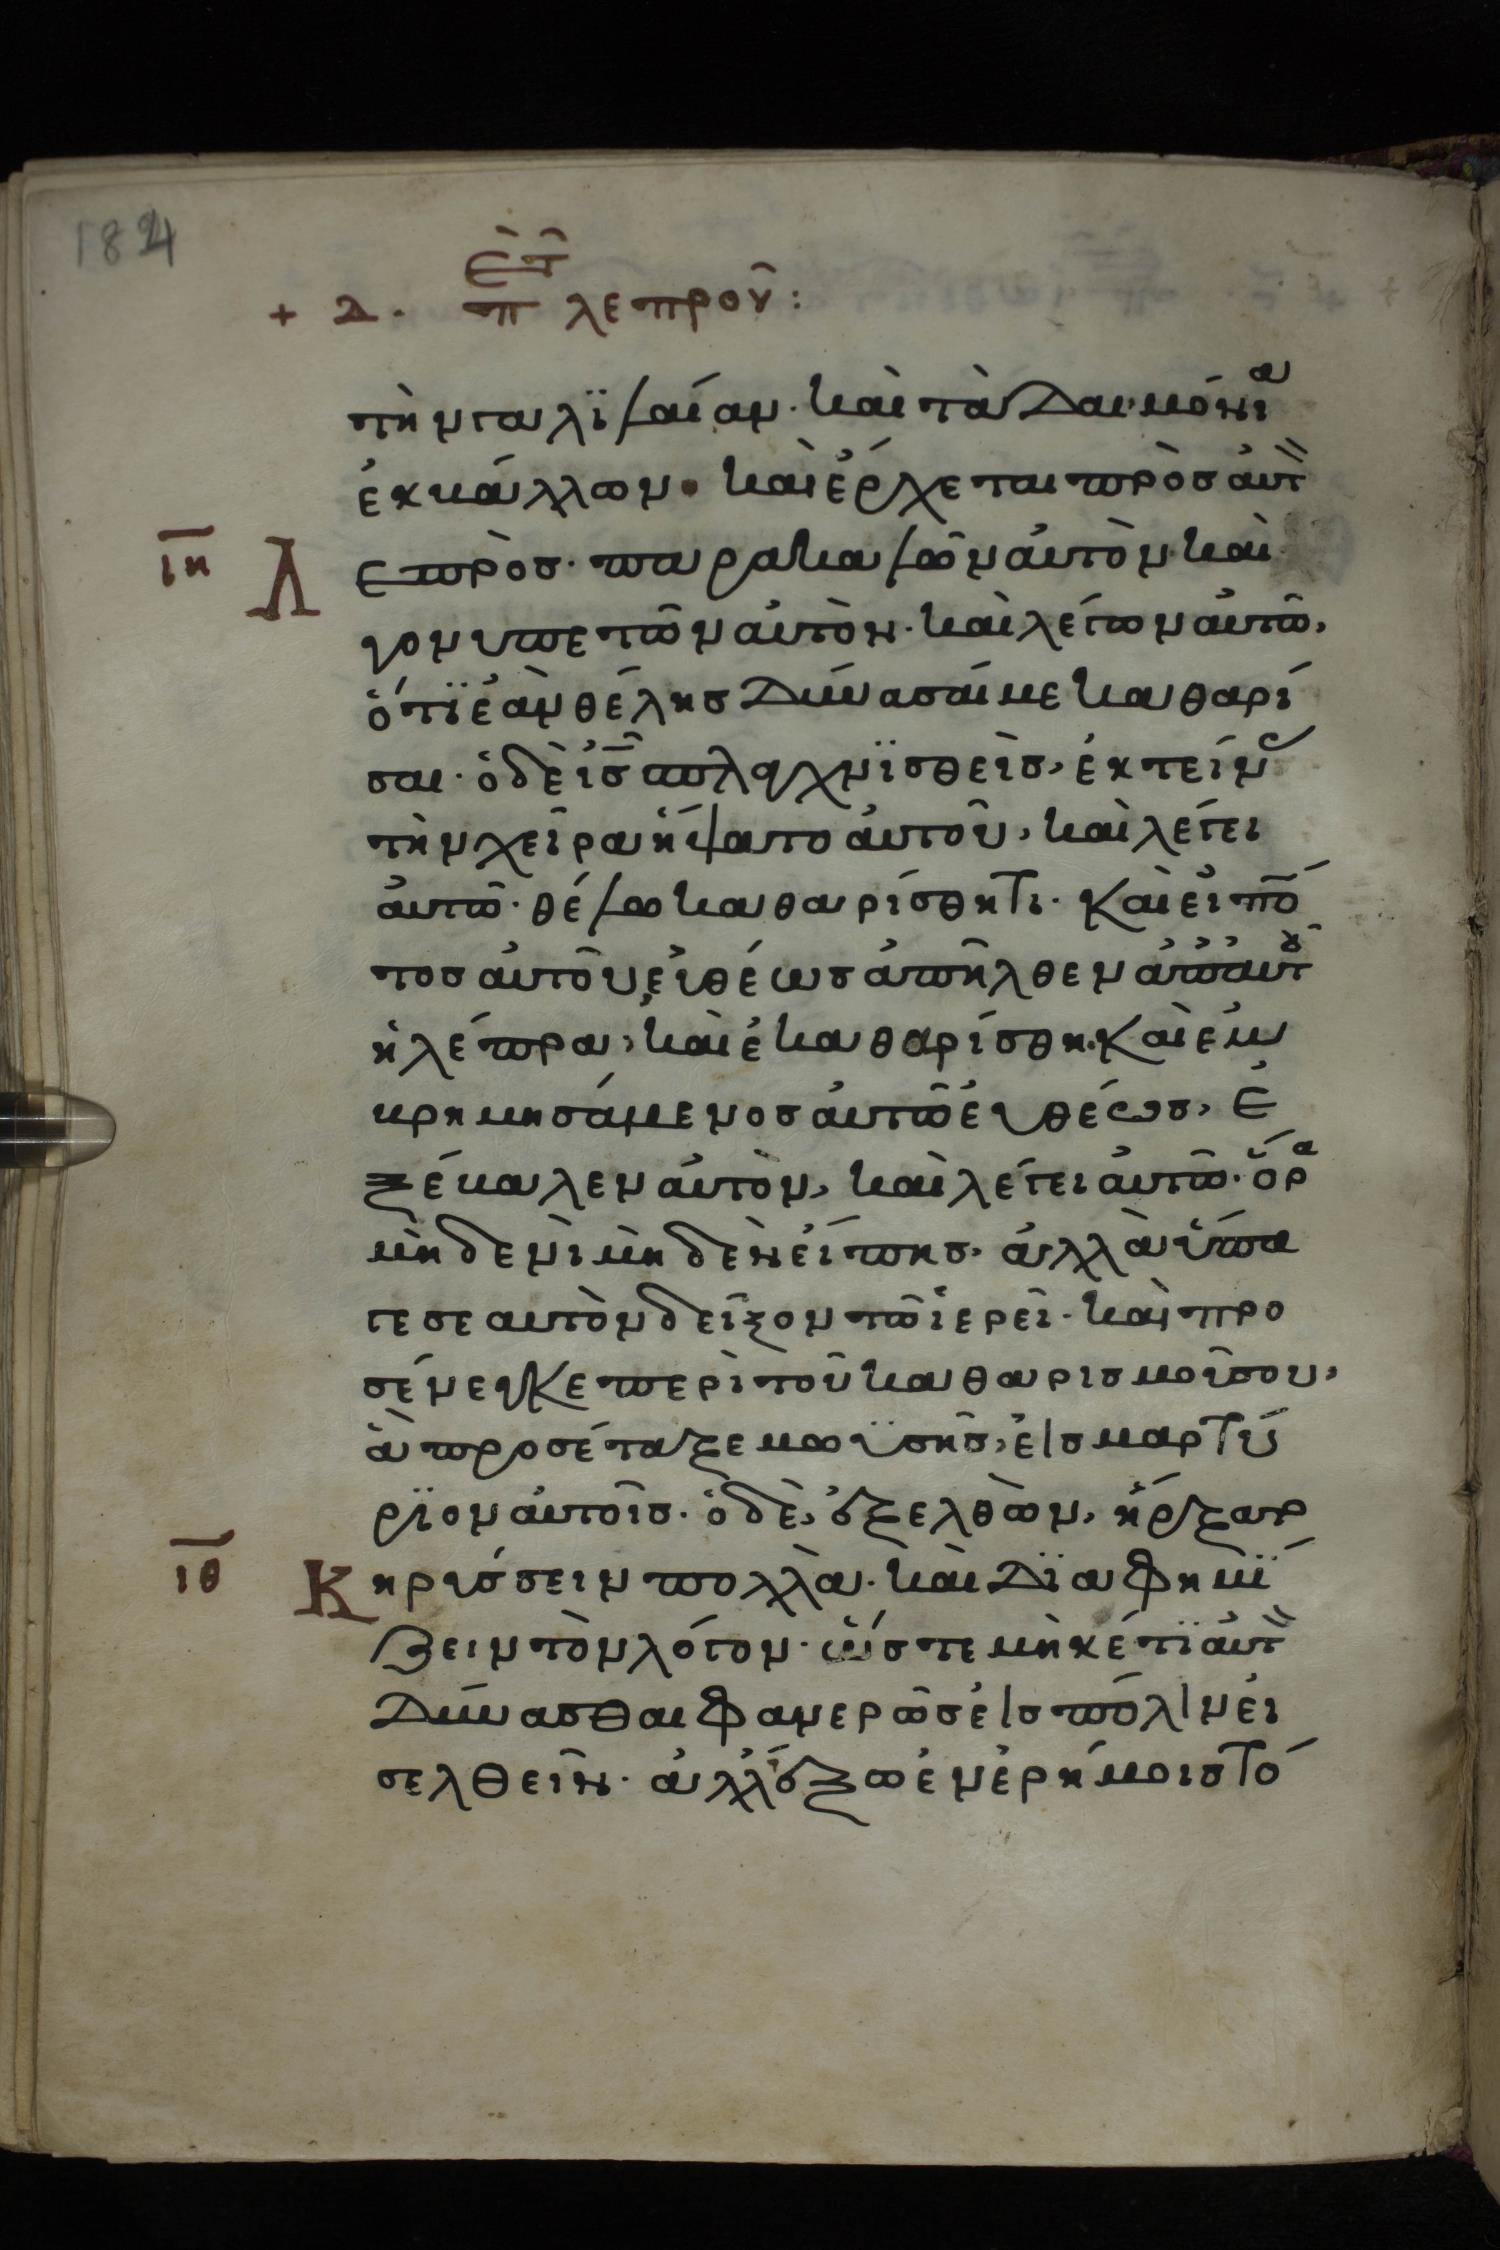 184
+ Δ. πε τ λεπροῦ:
τὴν γαλϊλαίαν· καὶ τὰ δαιμόνια
ἐκβάλλων· καὶ ἔρχεται πρὸς αὐτὸν
ιη Λεπρὸς· παρακαλῶν αὐτὸν καὶ
γονυπετῶν αὐτὸν· καὶ λέγων αὐτῶ,
ὅτϊ ἐὰν θέλης δύνασαί με καθαρί
σαι· ὁ δὲ ις σπλαγχνϊσθεὶς, ἐκτείνας
τὴν χεῖρα ἥψατο αὐτοῦ, καὶ λέγει
αὐτῶ· θέλω καθαρίσθητι· καὶ εἰπόν
τος αὐτοῦ, εὐθέως ἀπῆλθεν ἀπ αὐτοῦ
ἡ λέπρα, καὶ ἐκαθαρίσθη. καὶ ἐμ
βρημησάμενος αὐτῶ εὐθέως, ἐ
ξέβαλεν αὐτὸν, καὶ λέγει αὐτῶ· ὅρα
μὴδενὶ μὴδὲν εἴπης, ἀλλὰ ὕπα
γε σεαυτὸν δεῖξον τῶ ἱερεῖ· καὶ προ
σένεγκε περὶ τοῦ καθαρισμοῦ σου,
ἃ προσέταξε μωϋσῆς, εἰς μαρτύ
ρϊον αὐτοῖς· ὁ δὲ, ἐξελθὼν, ἤρξατο
ιθ Κηρύσσειν πολλὰ· καὶ δϊαφημΐ
ζειν τὸν λόγον· ὥστε μὴκέτϊ αὐτὸν
δύνασθαι φανερῶς εἰς πόλιν εἰ
σελθεῖν· ἀλλ' ἔξω ἐν ἐρήμοις τό